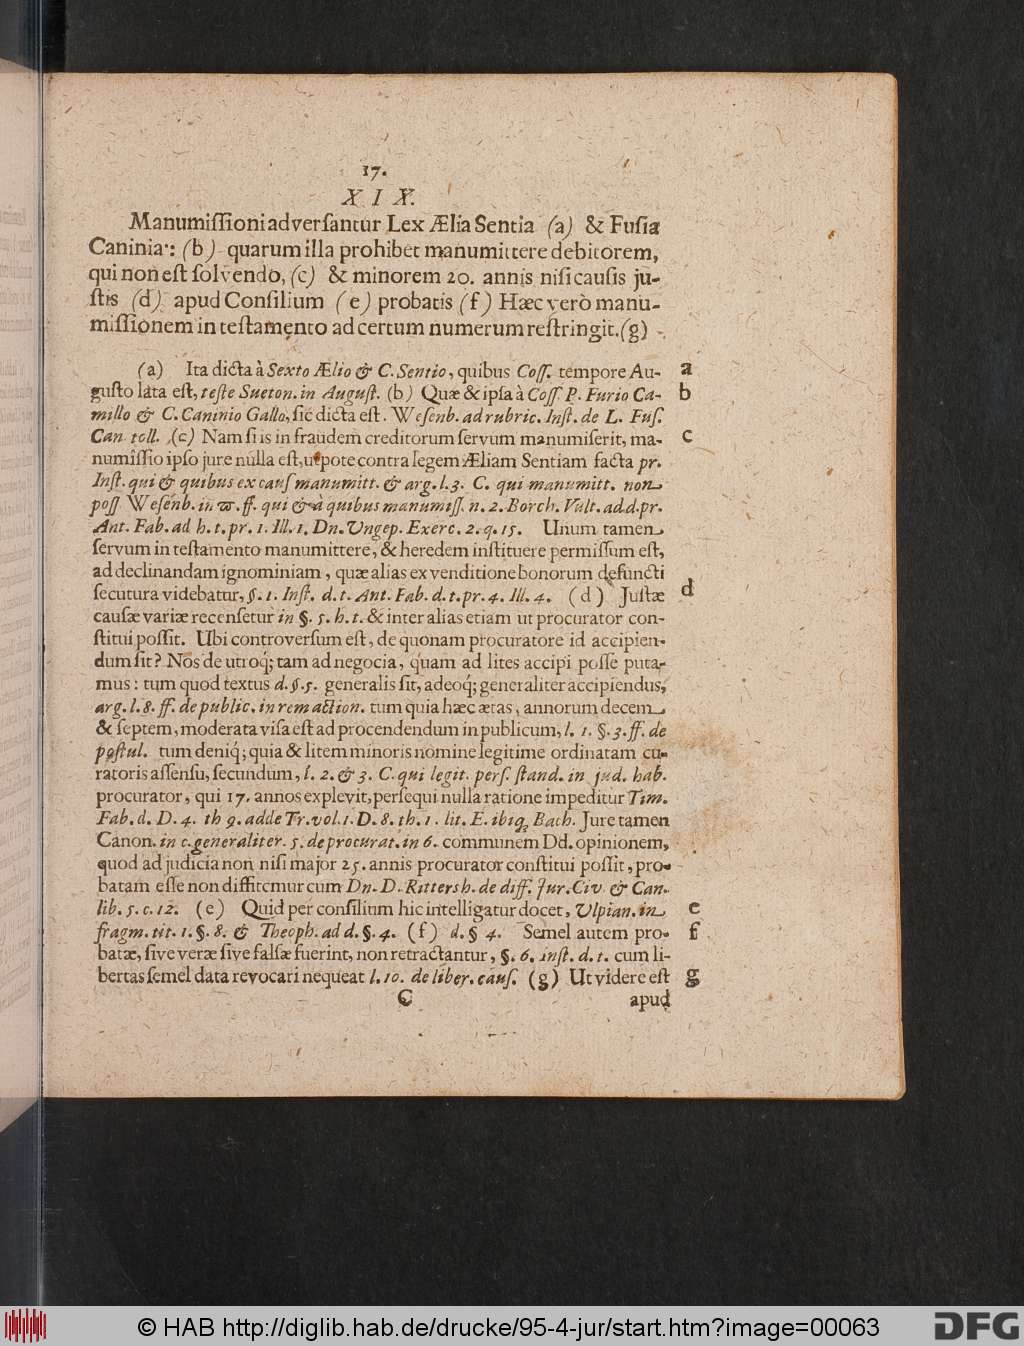 17.
XIX.
Manumiſſioni adverſantur Lex Ælia Sentia (a) & Fuſia
Caninia: (b) quarum illa prohibet manumittere debitorem,
qui non eſt ſolvendo, (c) & minorem 20. annis niſi cauſis ju-
ſtis (d) apud Conſilium (e) probatis (f) Hæc verò manu-
miſſionem in teſtamento ad certum numerum reſtringit. (g)
(a) Ita dicta à Sexto Ælio & C. Sentio, quibus Coſſ. tempore Au- a
guſto lata eſt, teſte Sueton. in Auguſt. (b) Quæ & ipſa à Coſſ. P. Furio Ca- b
millo & C. Caninio Gallo, ſic dicta eſt. Weſenb. ad rubric. Inſt. de L. Fuſ.
Can. toll. (c) Nam ſi is in fraudem creditorum ſervum manumiſerit, ma- c
numiſſio ipſo jure nulla eſt, utpote contra legem Æliam Sentiam facta pr.
Inſt. qui & quibus ex cauſ manumitt. & arg. l. 3. C. qui manumitt. non
poſſ Weſenb. in ϖ. ff. qui & à quibus manumiſſ. n. 2. Borch. Vult. ad d. pr.
Ant. Fab. ad h. t. pr. 1. Ill. 1. Dn. Ungep. Exerc. 2. q. 15. Unum tamen
ſervum in teſtamento manumittere, & heredem inſtituere permiſſum eſt,
ad declinandam ignominiam, quæ alias ex venditione bonorum defuncti
ſecutura videbatur, §. 1. Inſt. d. t. Ant. Fab. d. t. pr. 4. Ill. 4. (d) Juſtæ d
cauſæ variæ recenſetur in §. 5. h. t. & inter alias etiam ut procurator con-
ſtitui poſſit. Ubi controverſum eſt, de quonam procuratore id accipien-
dum ſit? Nos de utroq; tam ad negocia, quam ad lites accipi poſſe puta-
mus: tum quod textus d. §. 5. generalis ſit, adeoq; generaliter accipiendus,
arg. l. 8. ff. de public. in rem action. tum quia hæc ætas, annorum decem
& ſeptem, moderata viſa eſt ad procendendum in publicum, l. 1. §. 3. ff. de
poſtul. tum deniq; quia & litem minoris nomine legitime ordinatam cu-
ratoris aſſenſu, ſecundum, l. 2. & 3. C. qui legit. perſ. ſtand. in jud. hab.
procurator, qui 17. annos explevit, perſequi nulla ratione impeditur Tim.
Fab. d. D. 4. th 9. adde Tr. vol. 1. D. 8. th. 1. lit. E. ibiq; Bach. Jure tamen
Canon. in c. generaliter. 5. de procurat. in 6. communem Dd. opinionem,
quod ad judicia non niſi major 25. annis procurator conſtitui poſſit, pro-
batam eſſe non diffitemur cum Dn. D. Rittersh. de diff. Jur. Civ & Can.
lib. 5. c. 12. (e) Quid per conſilium hic intelligatur docet, Ulpian. in e
fragm. tit. 1. §. 8. & Theoph. ad d. §. 4. (f) d. § 4. Semel autem pro- f
batæ, ſive veræ ſive falſæ fuerint, non retractantur, §. 6. inſt. d. t. cum li-
bertas ſemel data revocari nequeat l. 10. de liber. cauſ. (g) Ut videre eſt g
C apud
© HAB http://diglib.hab.de/drucke/95-4-jur/start.htm?image=00063
DFG